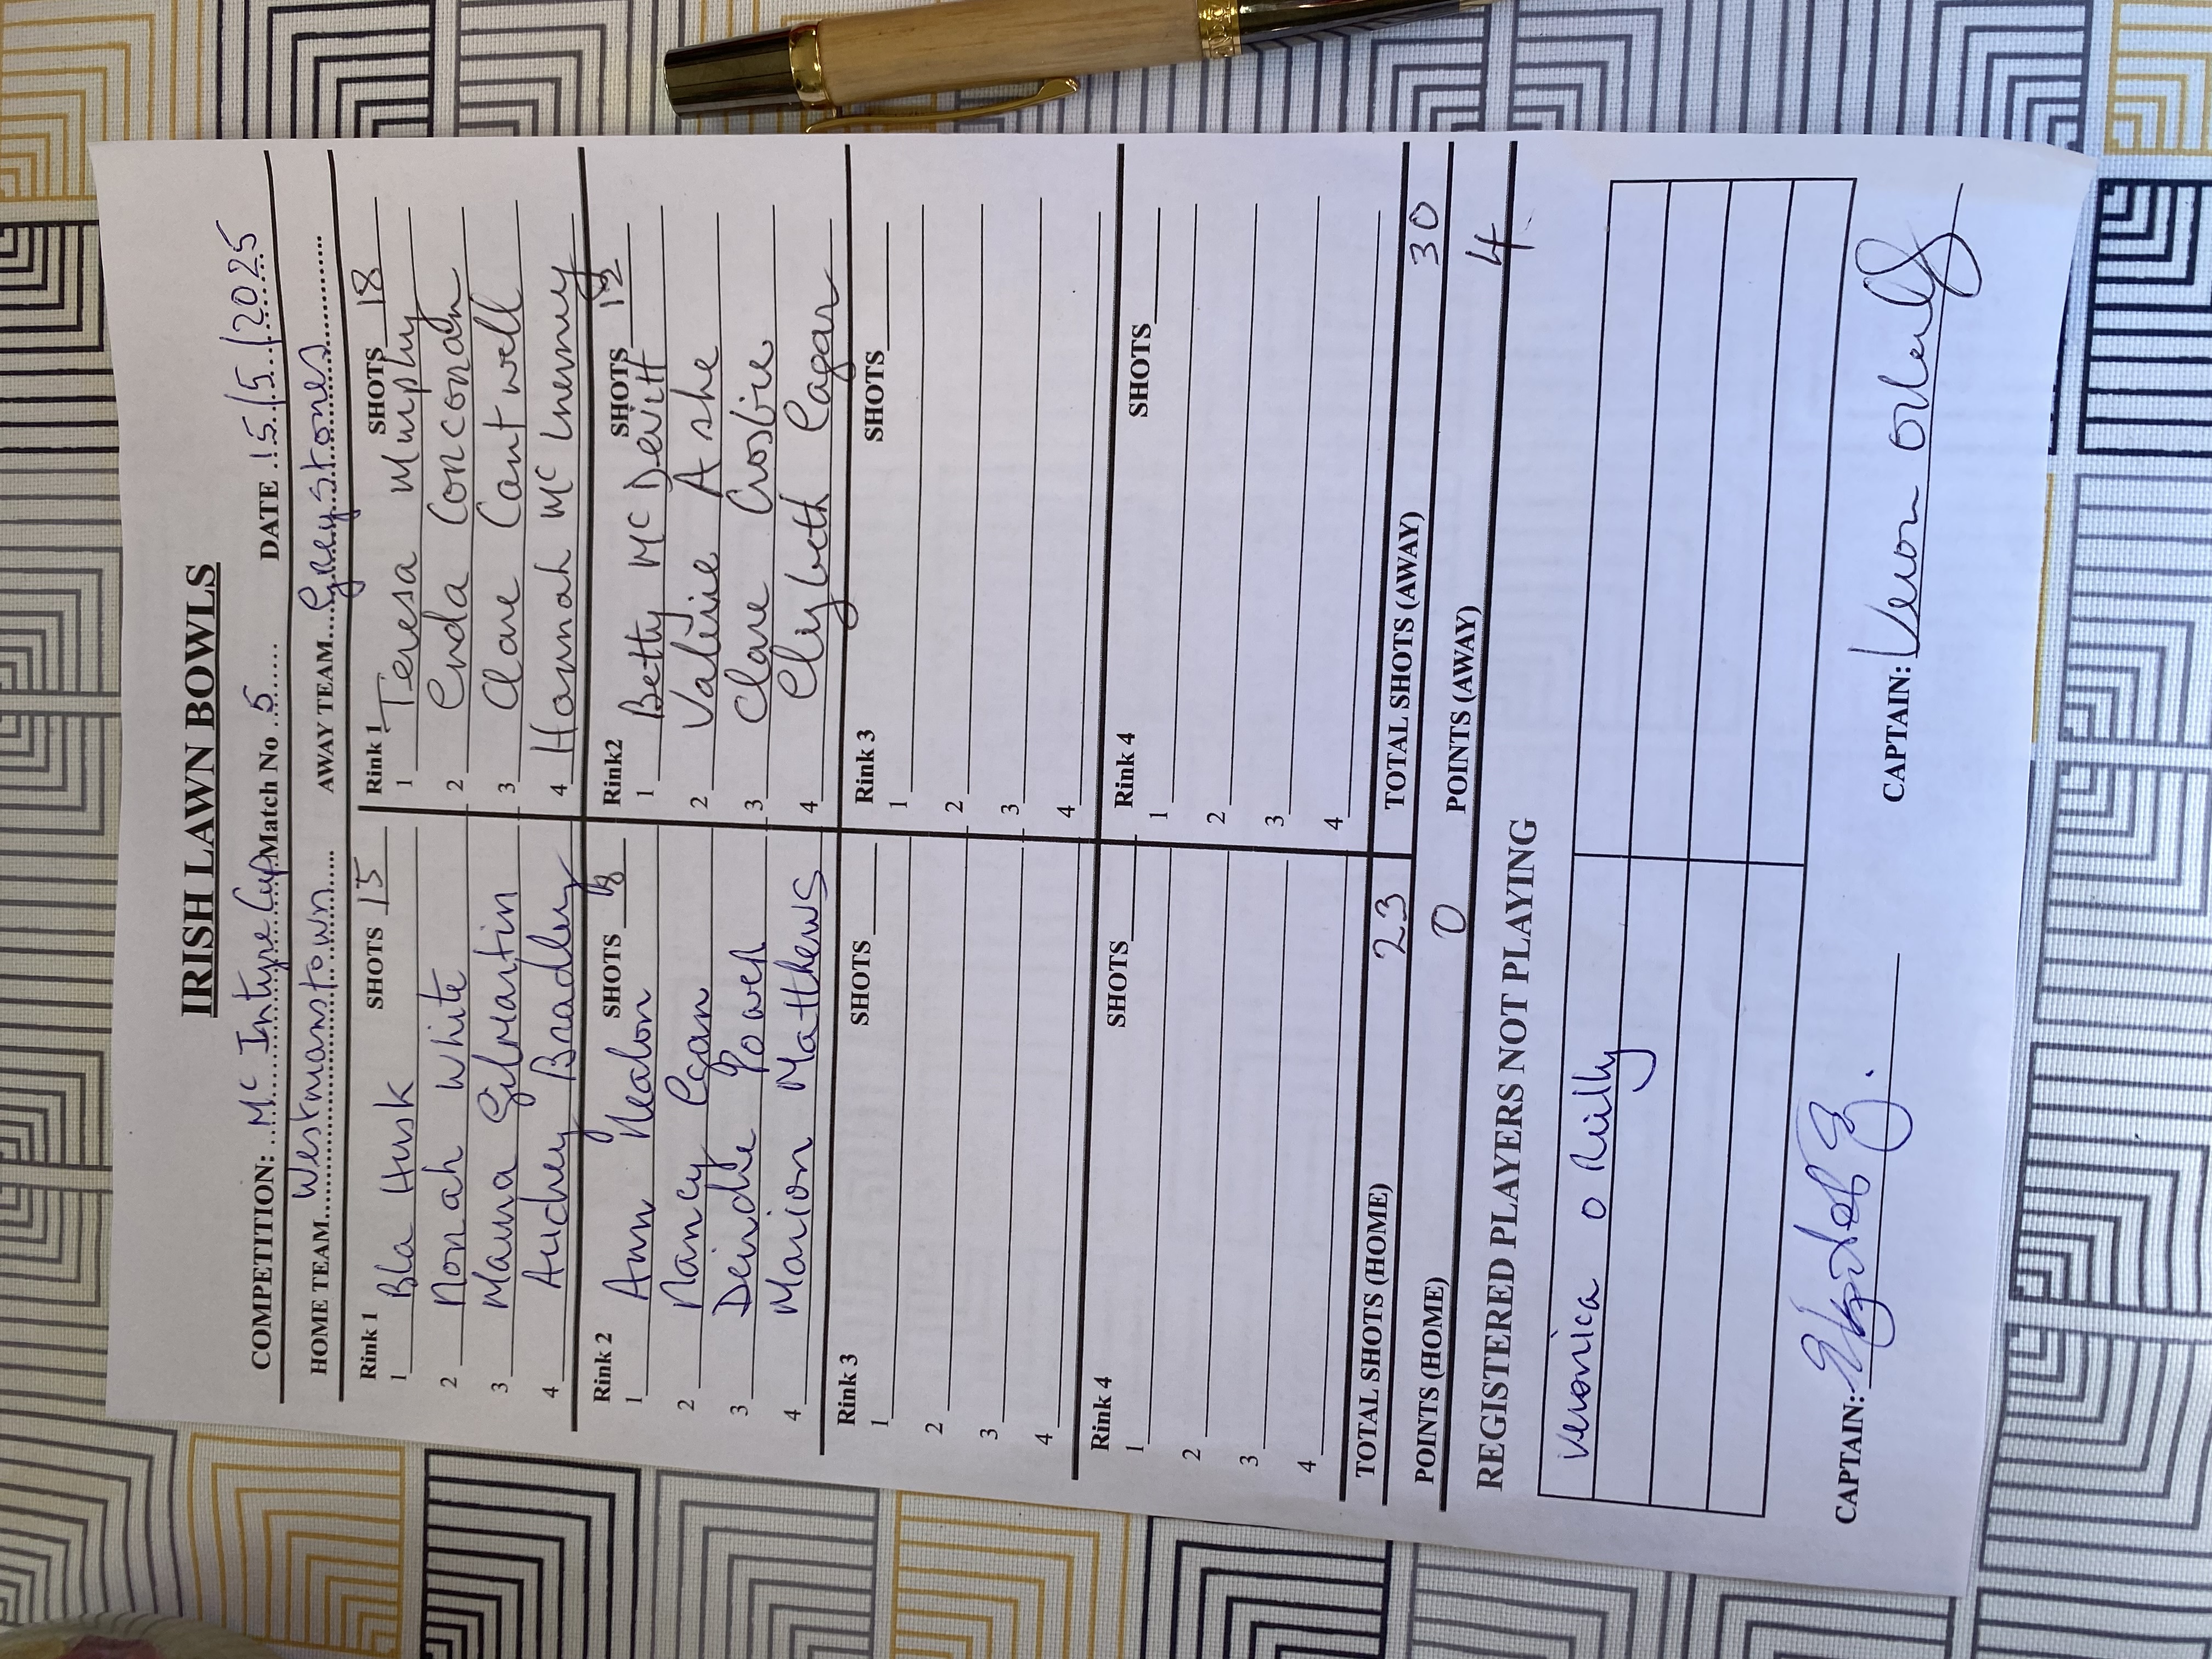 IRISH LAWN BOWLS
COMPETITION: Mc Intyre Cup Match No 5 DATE 15/5/2025
HOME TEAM Westmanstown AWAY TEAM Greystones
Rink 1 SHOTS 15 Rink 1 SHOTS 18
1 Bla Husk 1 Teresa Murphy
2 Nonah White 2 Enda Conconan
3 Maura Gilmartin 3 Clare Cantwell
4 Audrey Broadley 4 Hannah Mc Inerney
Rink 2 SHOTS 8 Rink2 SHOTS 12
1 Ann Nealon 1 Betty Mc Devitt
2 Nancy Egan 2 Valerie Ashe
3 Deirdre Power 3 Clare Crosbie
4 Marion Matthews 4 Elizabeth Eagar
Rink 3 SHOTS Rink 3 SHOTS
1 1
2 2
3 3
4 4
Rink 4 SHOTS Rink 4 SHOTS
1 1
2 2
3 3
4 4
TOTAL SHOTS (HOME) 23 TOTAL SHOTS (AWAY) 30
POINTS (HOME) 0 POINTS (AWAY) 4
REGISTERED PLAYERS NOT PLAYING
Veronica O Reilly
CAPTAIN: CAPTAIN: